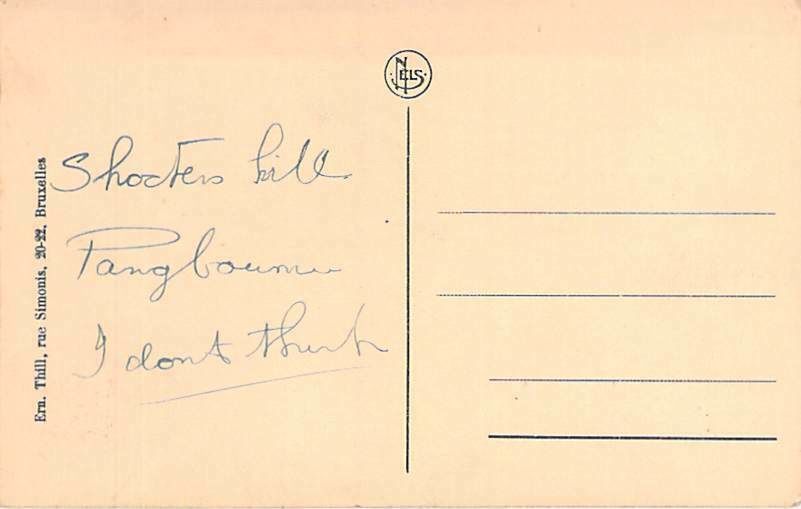 NELS
Ern. Thill, rue Simonis, 20-22, Bruxelles
Shooters hill
Pangbourne
I dont think